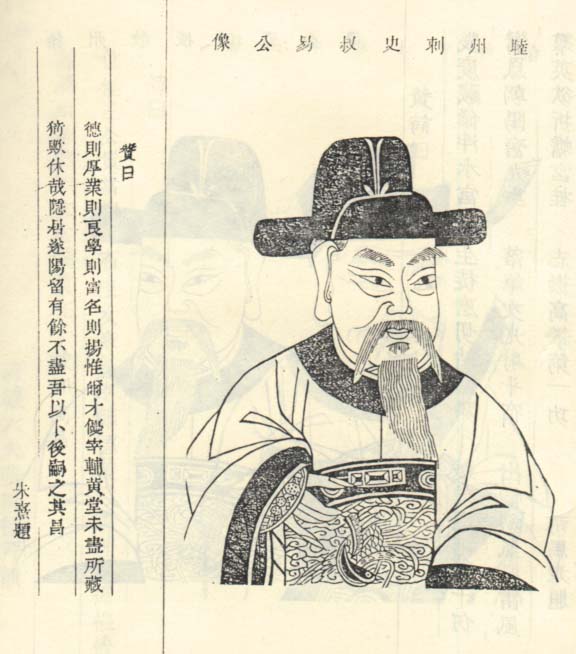 睦州刺史叔易公像
贊曰
德則厚業則良學則富名則揚惟爾才優宰輔黃堂未盡所藏
猗歟休哉隱居遂陽留有餘不盡吾以卜後嗣之其昌
朱熹題